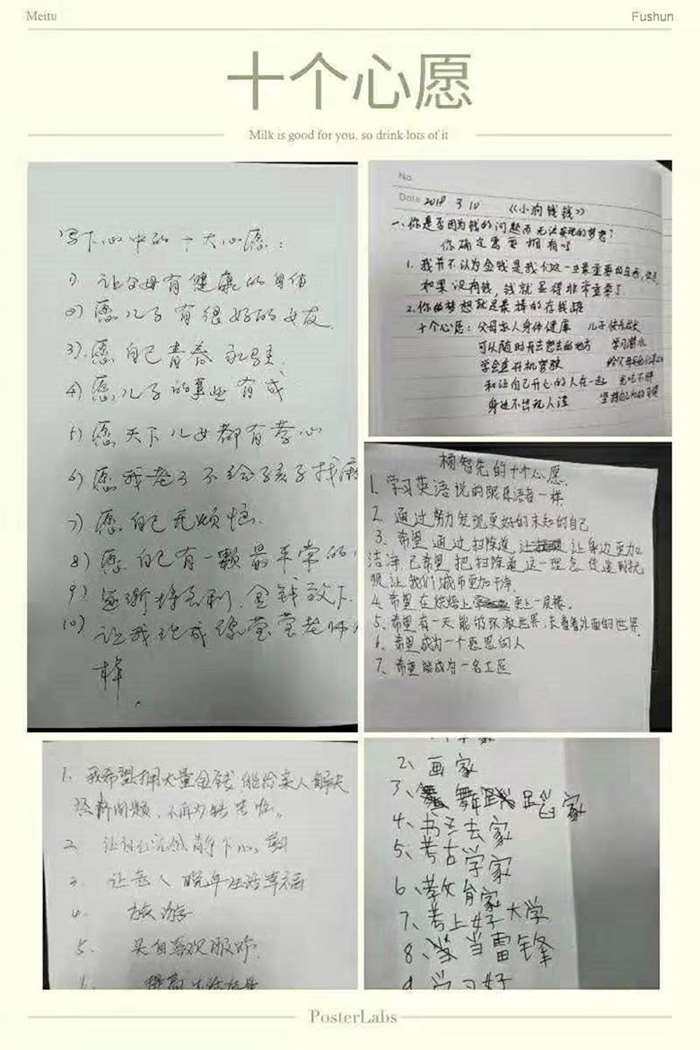 Meitu
Fushun
十个心愿
Milk is good for you, so drink lots of it
写下心中的十大心愿：
1) 让父母有健康的身体
2) 愿儿子有很好的女友
3) 愿自己青春永驻
4) 愿儿子的事业有成
5) 愿天下儿女都有孝心
6) 愿我老了不给孩子找麻
7) 愿自己无烦恼
8) 愿自己有一颗最平常的
9) 逐渐将名利、金钱放下
10) 让我达成
样
No.
Date 2018 3 10 《小狗钱钱》
一、你是否因为钱的问题而无法实现的梦想？
你确定需要拥有吗
1. 我并不认为金钱是我们这一生最重要的东西，但是
如果没有钱，钱就显得非常重要了
2. 你的梦想就是最棒的在线路
十个心愿：父母家人身体健康 儿子快乐成长
可以随时去想去的地方 学习潜水
学会直升机驾驶
和让自己开心的人在一起 光吃不胖
身边不出现人渣
杨智先的十个心愿
1. 学习英语说的跟母语者一样
2. 通过努力发现更好的未知的自己
3. 希望通过扫除道 让身边更加
洁净，已希望把扫除道这一理念传递到抚
顺，让我们城市更加干净
4. 希望在烘焙上更上一层楼。
5. 希望有一天能够环游世界，去看看外面的世界
6. 希望成为一个感恩的人
7. 希望能成为一名义工
1. 我希望拥大量金钱，能给家人解决
经济问题，不再为钱苦恼。
2
3. 让老人晚年生活幸福
4. 旅游
5. 买自喜欢服饰
提高生活质量
2、画家
3、舞蹈家
4、书法家
5、考古学家
6、教育家
7、考上好大学
8、当雷锋
9、学习好
PosterLabs